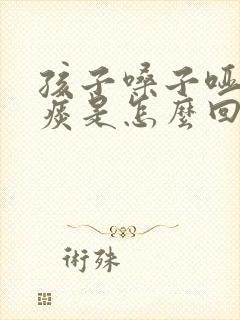 孩子嗓子啞
痰是怎麼回
術殊